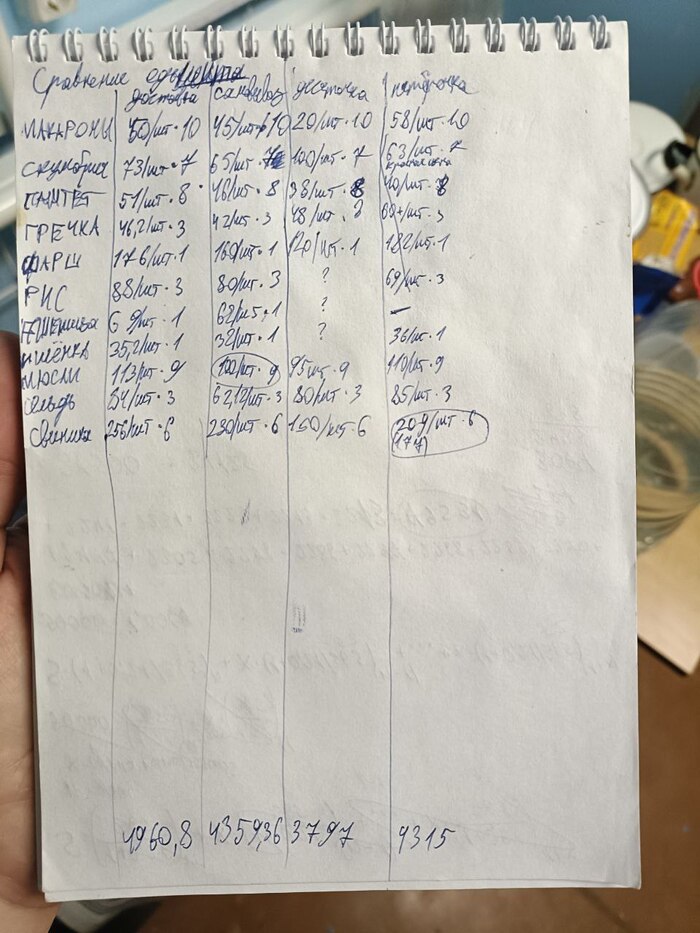 Сравнение
доставка самовывоз десяточка пятёрочка
МАКАРОНЫ 50/шт · 10 45/шт · 10 20/шт · 10 58/шт · 10
скумбрия 73/шт · 7 65/шт · 100/шт · 7 63/шт · 7
ПАШТЕТ 51/шт · 8 46/шт · 8 38/шт · 8 40/шт · 8
ГРЕЧКА 46,2/шт · 3 42/шт · 3 48/шт · /шт · 3
ФАРШ 176/шт · 1 160/шт · 1 120/шт · 1 182/шт · 1
РИС 88/шт · 3 80/шт · 3 ? 69/шт · 3
Пшеница 69/шт · 1 62/шт · 1 ? —
пшёнка 35,2/шт · 1 32/шт · 1 ? 36/шт · 1
мюсли 113/шт · 9 100/шт · 9 95шт · 9 110/шт · 9
сельдь /шт · 3 62,12/шт · 3 80/шт · 3 85/шт · 3
Свинина 256/шт · 6 230/шт · 6 150/шт · 6 204/шт · 6
(177)
4960,8 4359,36 3797 4315